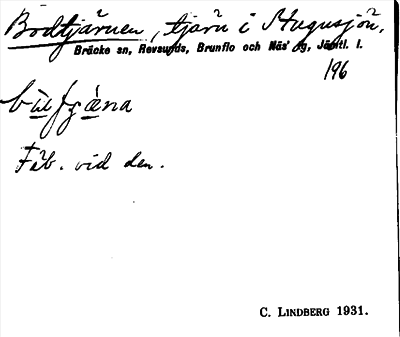 Bodtjärnen, tjärn i Hugusjön,
Bräcke sn, Revsunds, Brunflo och Näs' tg, Jämtl. l.
196
Fäb. vid den.
C. LINDBERG 1931.